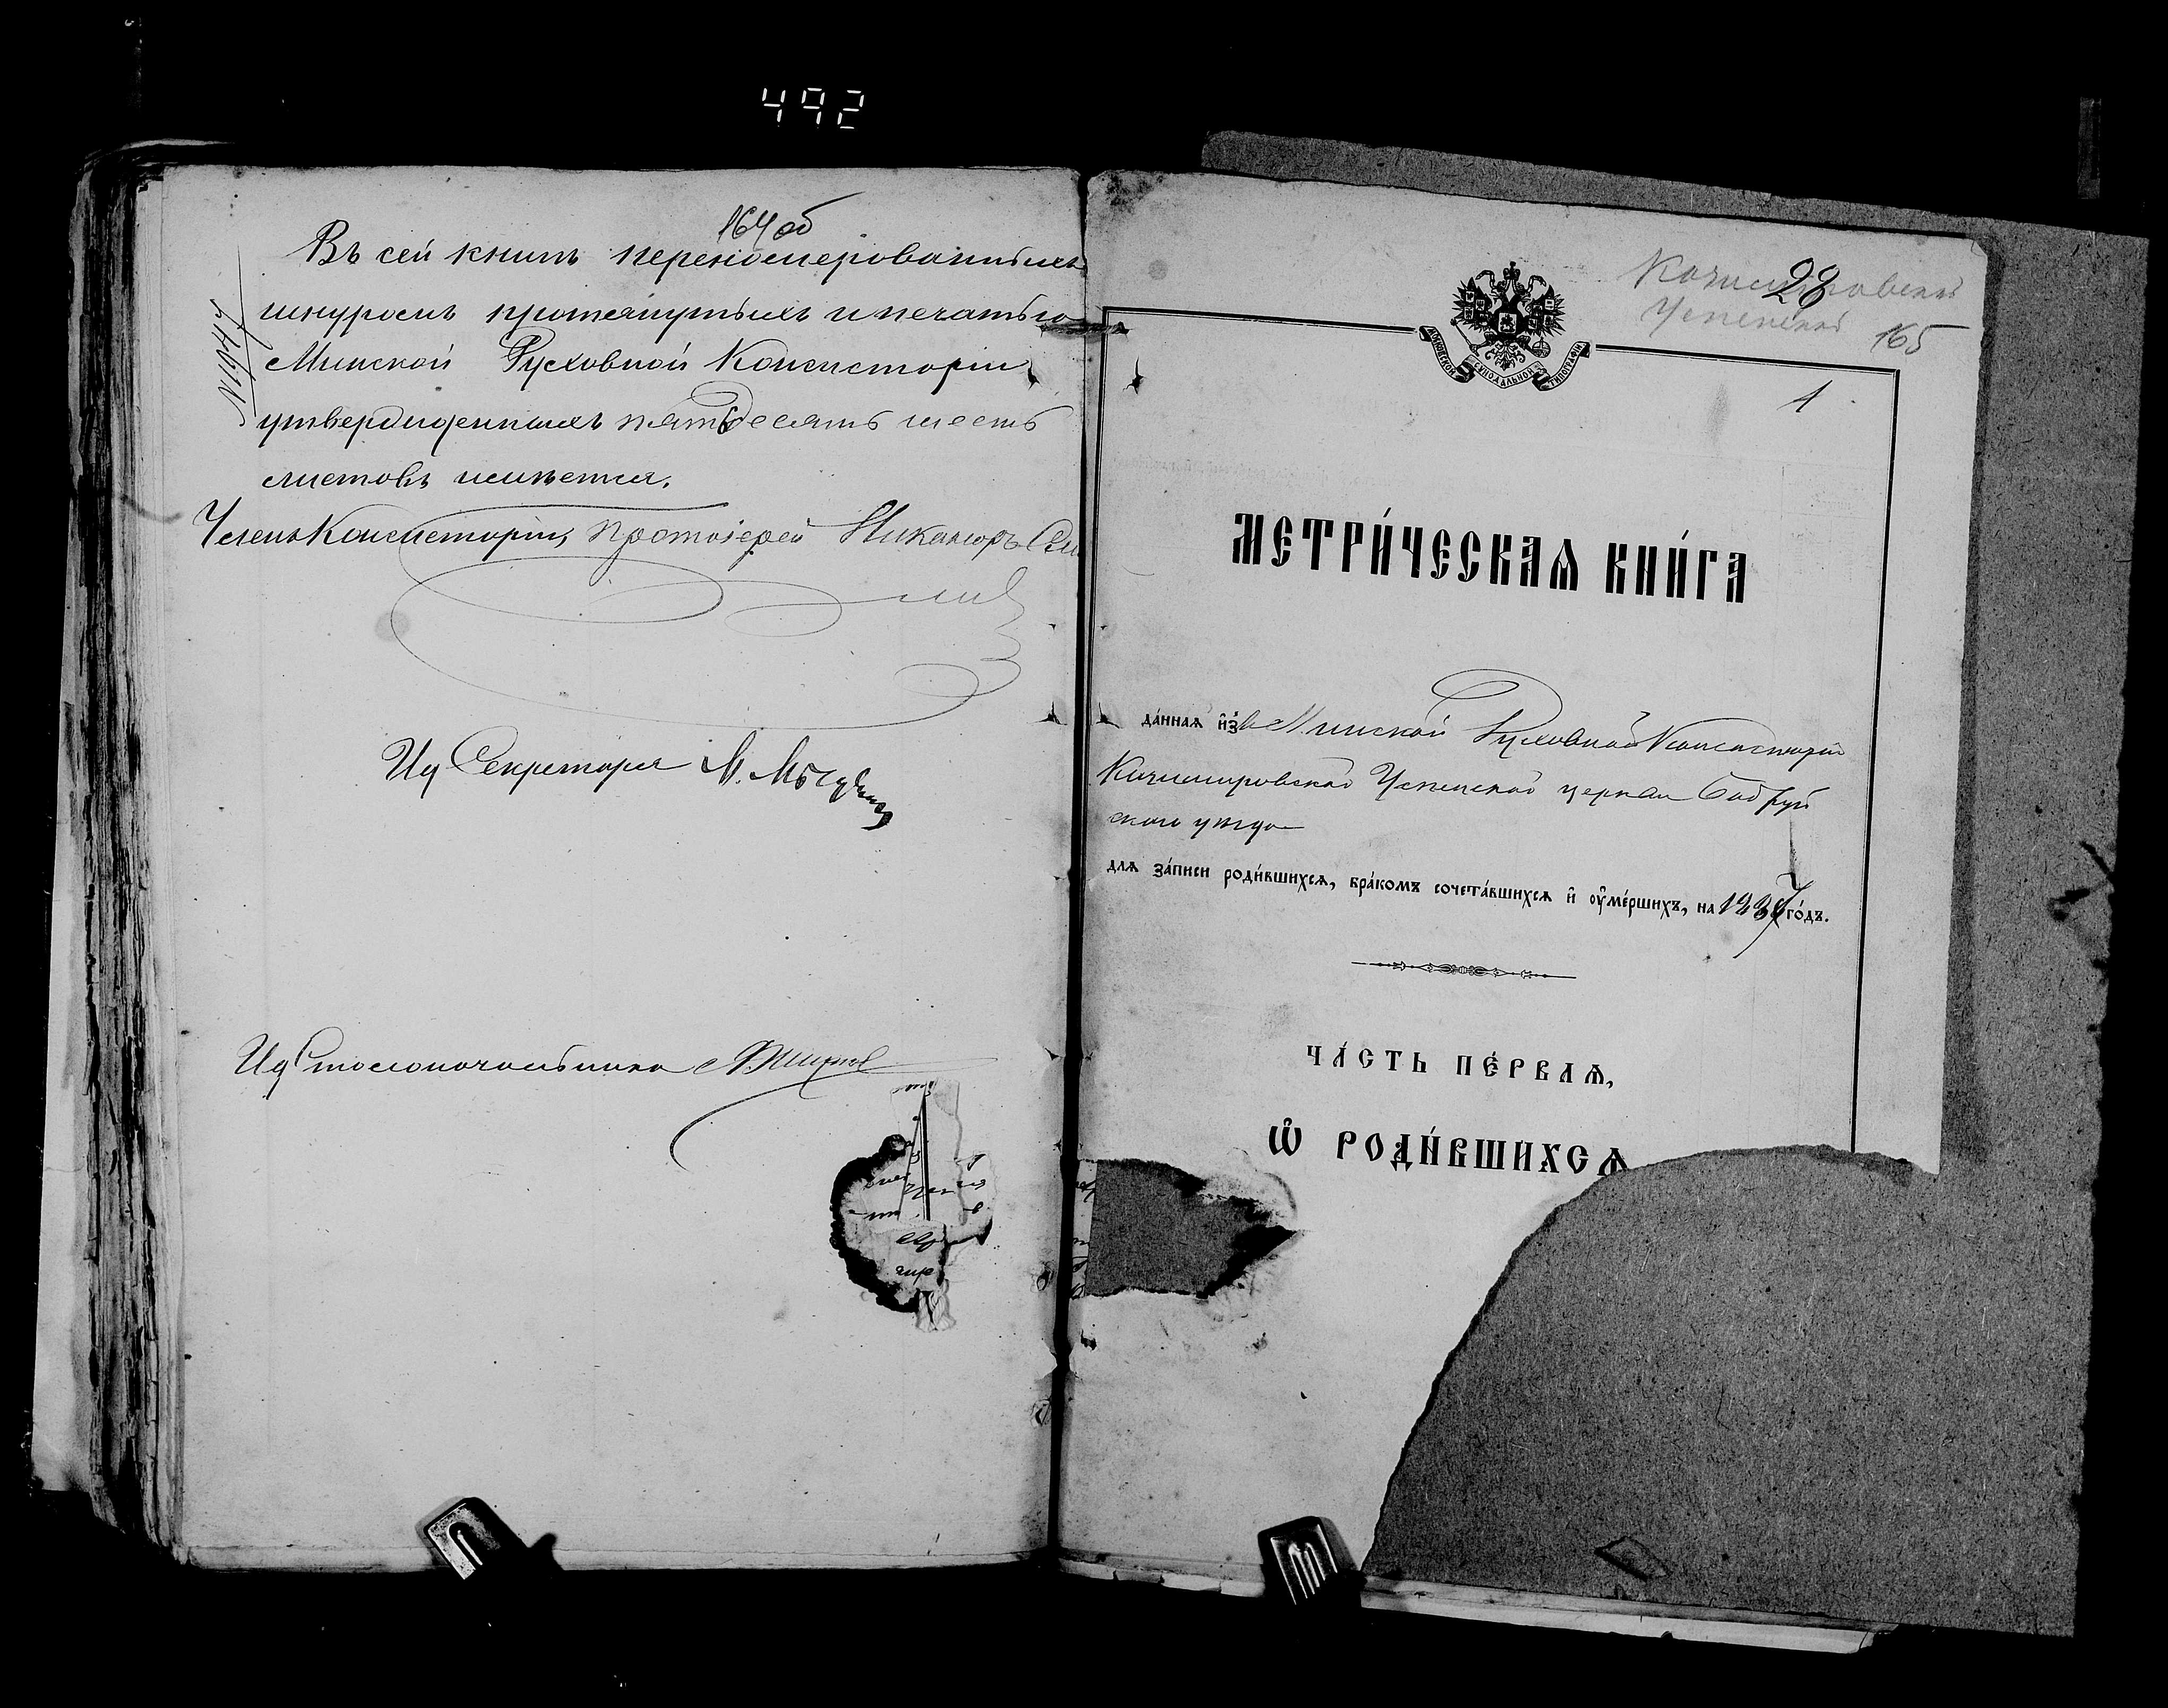 492
164 об
Въ сей книгѣ перенумерованныхъ
шнуромъ протянутыхъ и печатью
Минской Духовной Консисторіи
утвержденныхъ пятьдесятъ шесть
листовъ имѣется.
Членъ Консисторіи, Протоіерей Никаноръ
И д Секретаря М.
И д Столоначальника
№1047
28
Успенская
165
МОСКОВСКОЙ СѴНОДАЛЬНОЙ ТИПОГРАФІИ
1
МЕТРИ́ЧЕСКАѦ КНИ́ГА
да́ннаѧ и҆зъ Минской Духовной Консисторіи
Успенской церкви Бобруй
скаго уѣзда
длѧ за́писи роди́вшихсѧ, бра́комъ сочета́вшихсѧ и҆ ᲂу҆ме́ршихъ, на 1887 го́дъ.
ЧА́СТЬ ПЕ́РВАѦ,
Ѡ҆ РОДИ́ВШИХСѦ